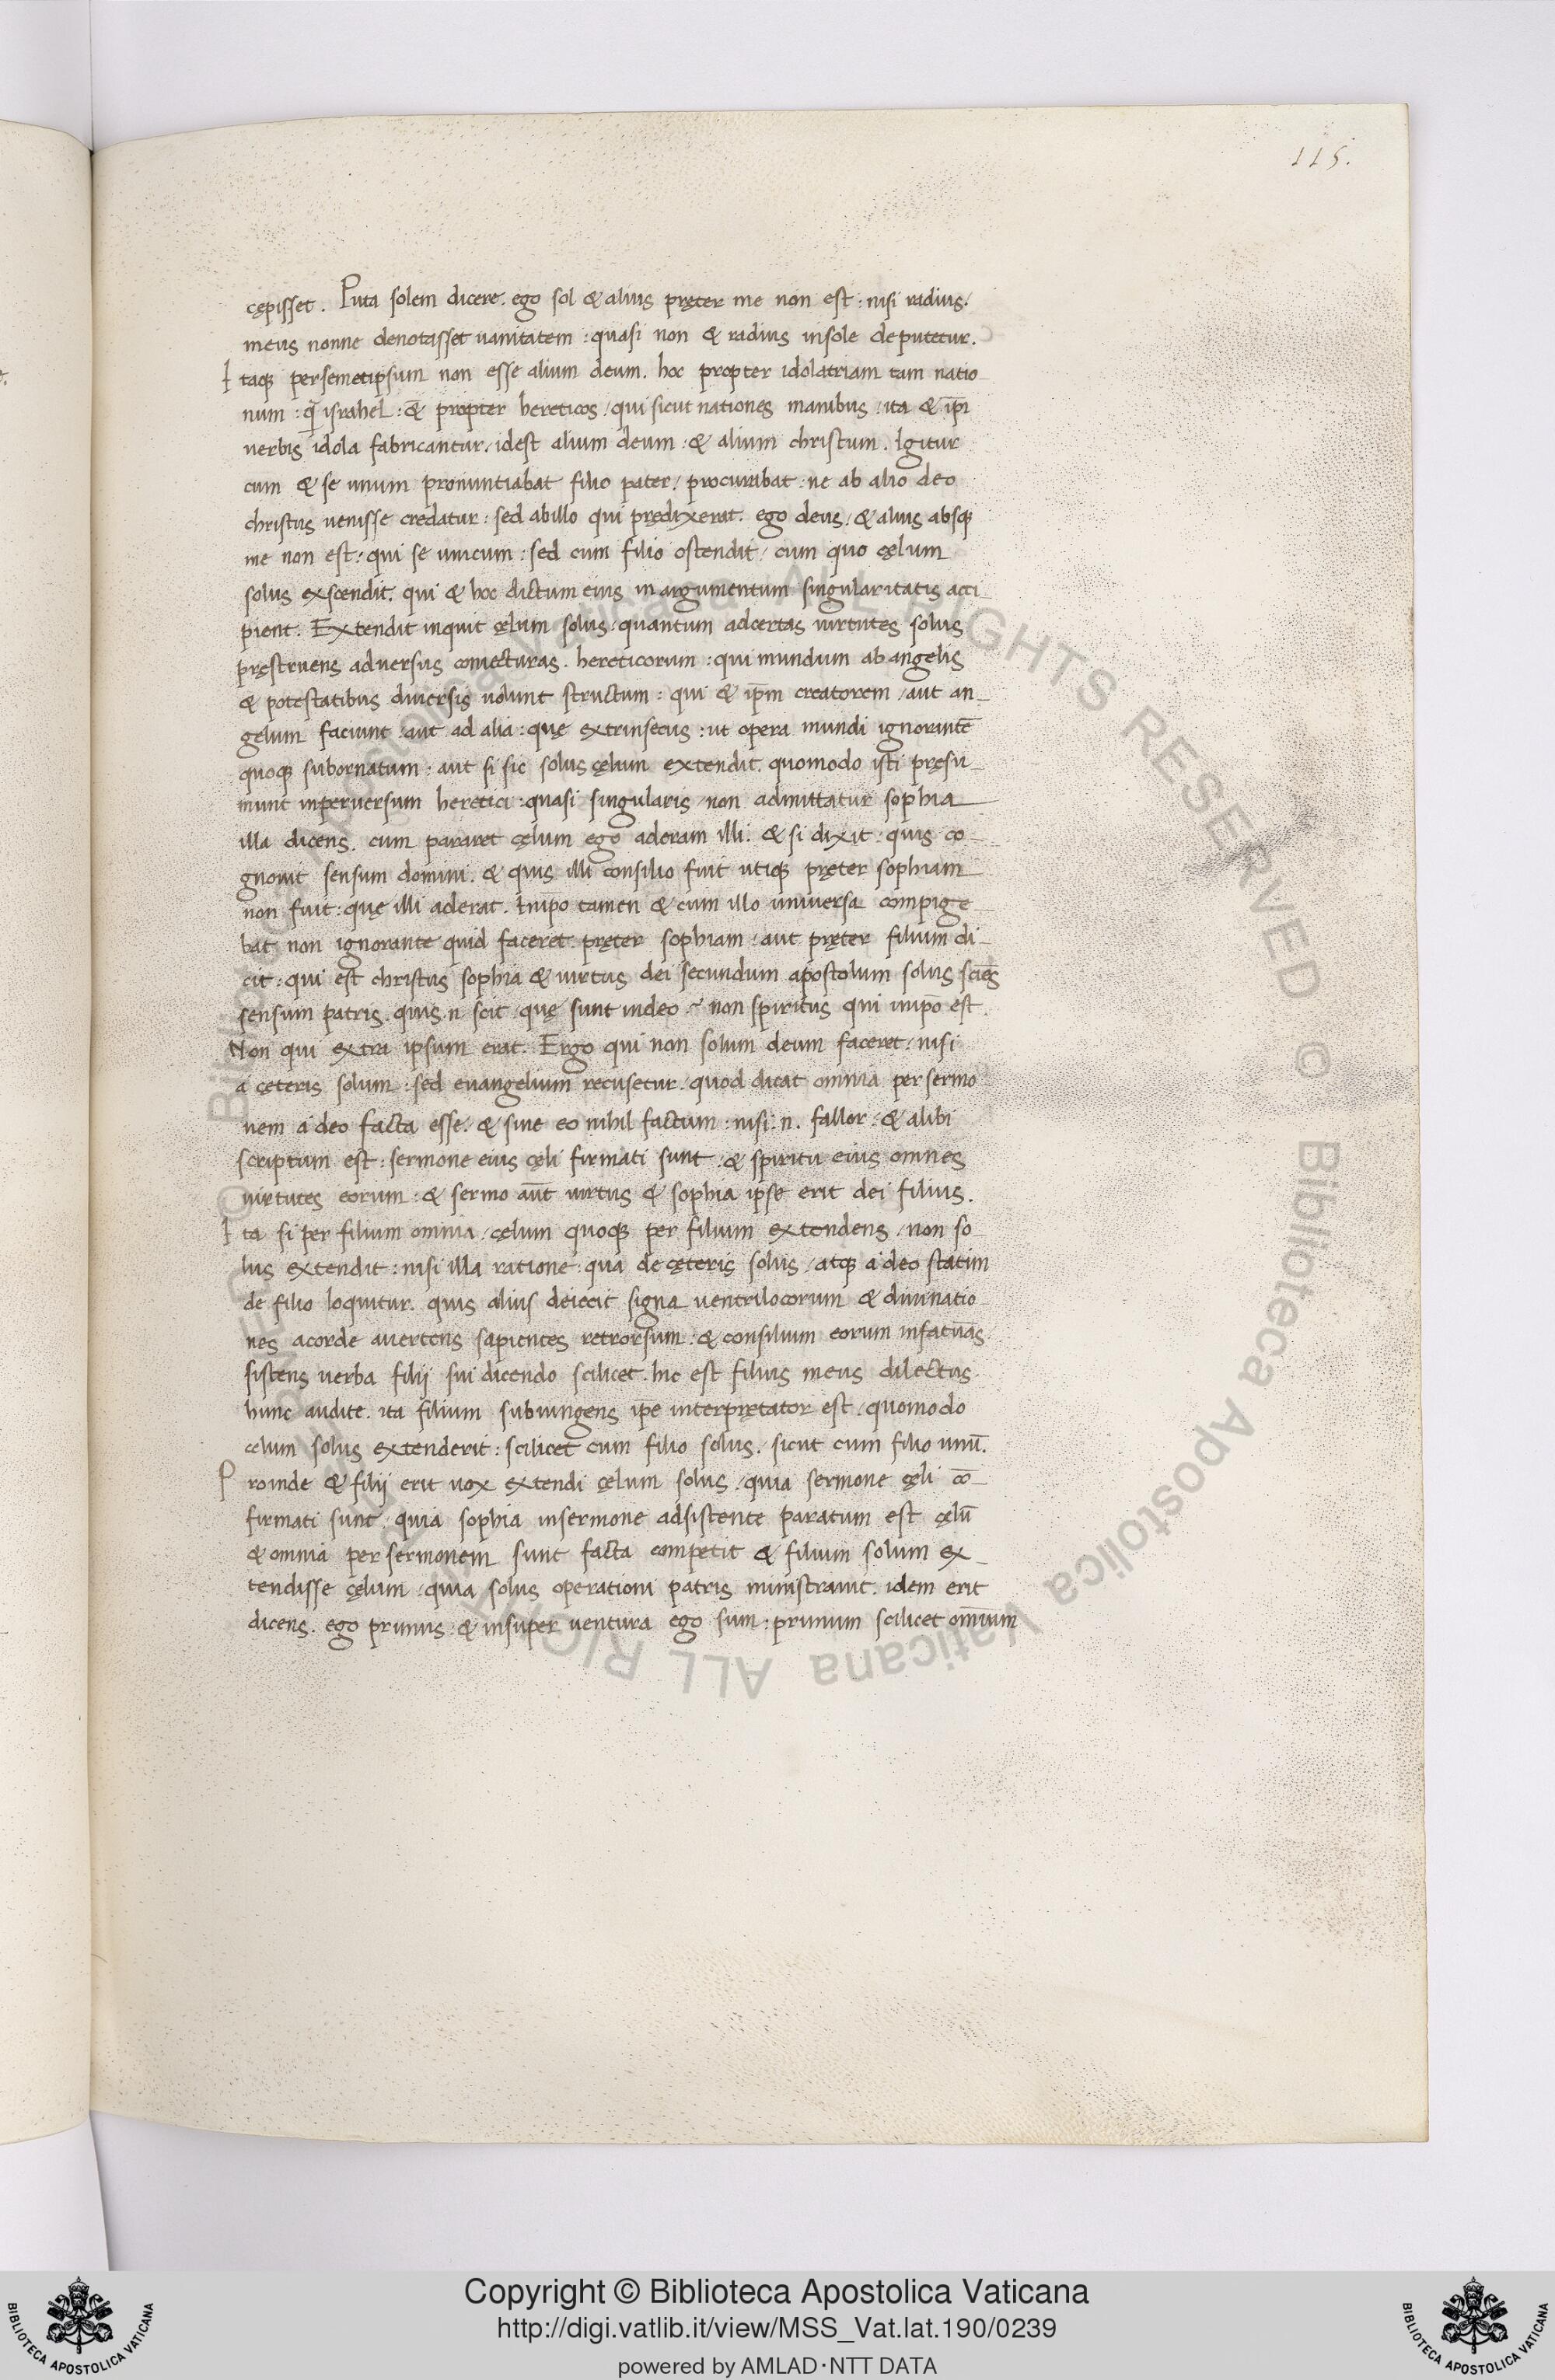 115.
cępisset. Puta solem dicere. ego sol & alius pręter me non est : nisi radius.
meus nonne denotasset uanitatem : quasi non & radius insole deputetur.
Itaqꝫ persemetipsum non esse alium deum. hoc propter idolatriam tam natio
num : q̄ israhel : & propter hereticos / qui sicut nationes manibus / ita & ip̄i
uerbis idola fabricantur / idest alium deum : & alium christum. Igitur
cum & se unum pronuntiabat filio pater / procurabat : ne ab alio deo
christus uenisse credatur : sed abillo qui prędixerat. ego deus / & alius absqꝫ
me non est : qui se unicum : sed cum filio ostendit / cum quo cęlum
solus exscendit. qui & hoc dictum eius in argumentum singularitatis acci
pient. Extendit inquit cęlum solus / quantum adcertas uirtutes solus
pręstruens aduersus coniecturas. hereticorum : qui mundum ab angelis
& potestatibus diuersis uolunt structum : qui & ip̄m creatorem / aut an_
gelum faciunt / aut ad alia : quę extrinsecus : ut opera mundi ignorantē
quoqꝫ subornatum : aut si sic solus cęlum extendit. quomodo isti pręsu_
munt inperuersum heretici : quasi singularis / non admittatur sophia
illa dicens. cum pararet cęlum ego aderam illi. & si dixit : quis co_
gnouit sensum domini. & quis illi consilio fuit utiqꝫ pręter sophiam
non fuit : quę illi aderat. Inipo tamen & cum illo uniuersa compige_
bat non ignorante quid faceret. pręter sophiam / aut pręter filium di_
cit : qui est christus sophia & uirtus dei secundum apostolum solus sciēs
sensum patris. quis.n scit / quę sunt indeo / non spiritus qui inip̄o est.
Non qui extra ipsum erat. Ergo qui non solum deum faceret / nisi
a cęteris solum : sed euangelium recusetur / quod dicat omnia per sermo
nem a deo facta esse. & sine eo nihil factum : nisi .n. fallor : & alibi
scriptum est : sermone eius cęli firmati sunt : & spiritu eius omnes
uirtutes eorum : & sermo aūt uirtus & sophia ipse erit dei filius.
Ita si per filium omnia / cęlum quoqꝫ per filium extendens / non so_
lus extendit : nisi illa ratione qua de cęteris solus / atqꝫ a deo statim
de filio loquitur. quis alius deiecit signa uentrilocorum & diuinatio
nes acorde auertens sapientes retrorsum : & consilium eorum infatuās.
sistens uerba filij sui dicendo scilicet. hic est filius meus dilectus.
hunc audite. ita filium subiungens ip̄e interpretator est / quomodo
celum solus extenderit : scilicet cum filio solus / sicut cum filio unū.
Proinde & filij erit uox extendi cęlum solus / quia sermone cęli cō_
firmati sunt / quia sophia insermone adsistente paratum est cęlū
& omnia per sermonem sunt facta competit & filium solum ex_
tendisse cęlum / quia solus operationi patris ministrauit. idem erit
dicens. ego primus : & insuper uentura ego sum : primum scilicet omīum
© Biblioteca Apostolica Vaticana ALL RIGHTS RESERVED © Biblioteca Apostolica Vaticana ALL RIGHTS
Copyright © Biblioteca Apostolica Vaticana
http://digi.vatlib.it/view/MSS_Vat.lat.190/0239
powered by AMLAD·NTT DATA
BIBLIOTECA APOSTOLICA VATICANA
BIBLIOTECA APOSTOLICA VATICANA